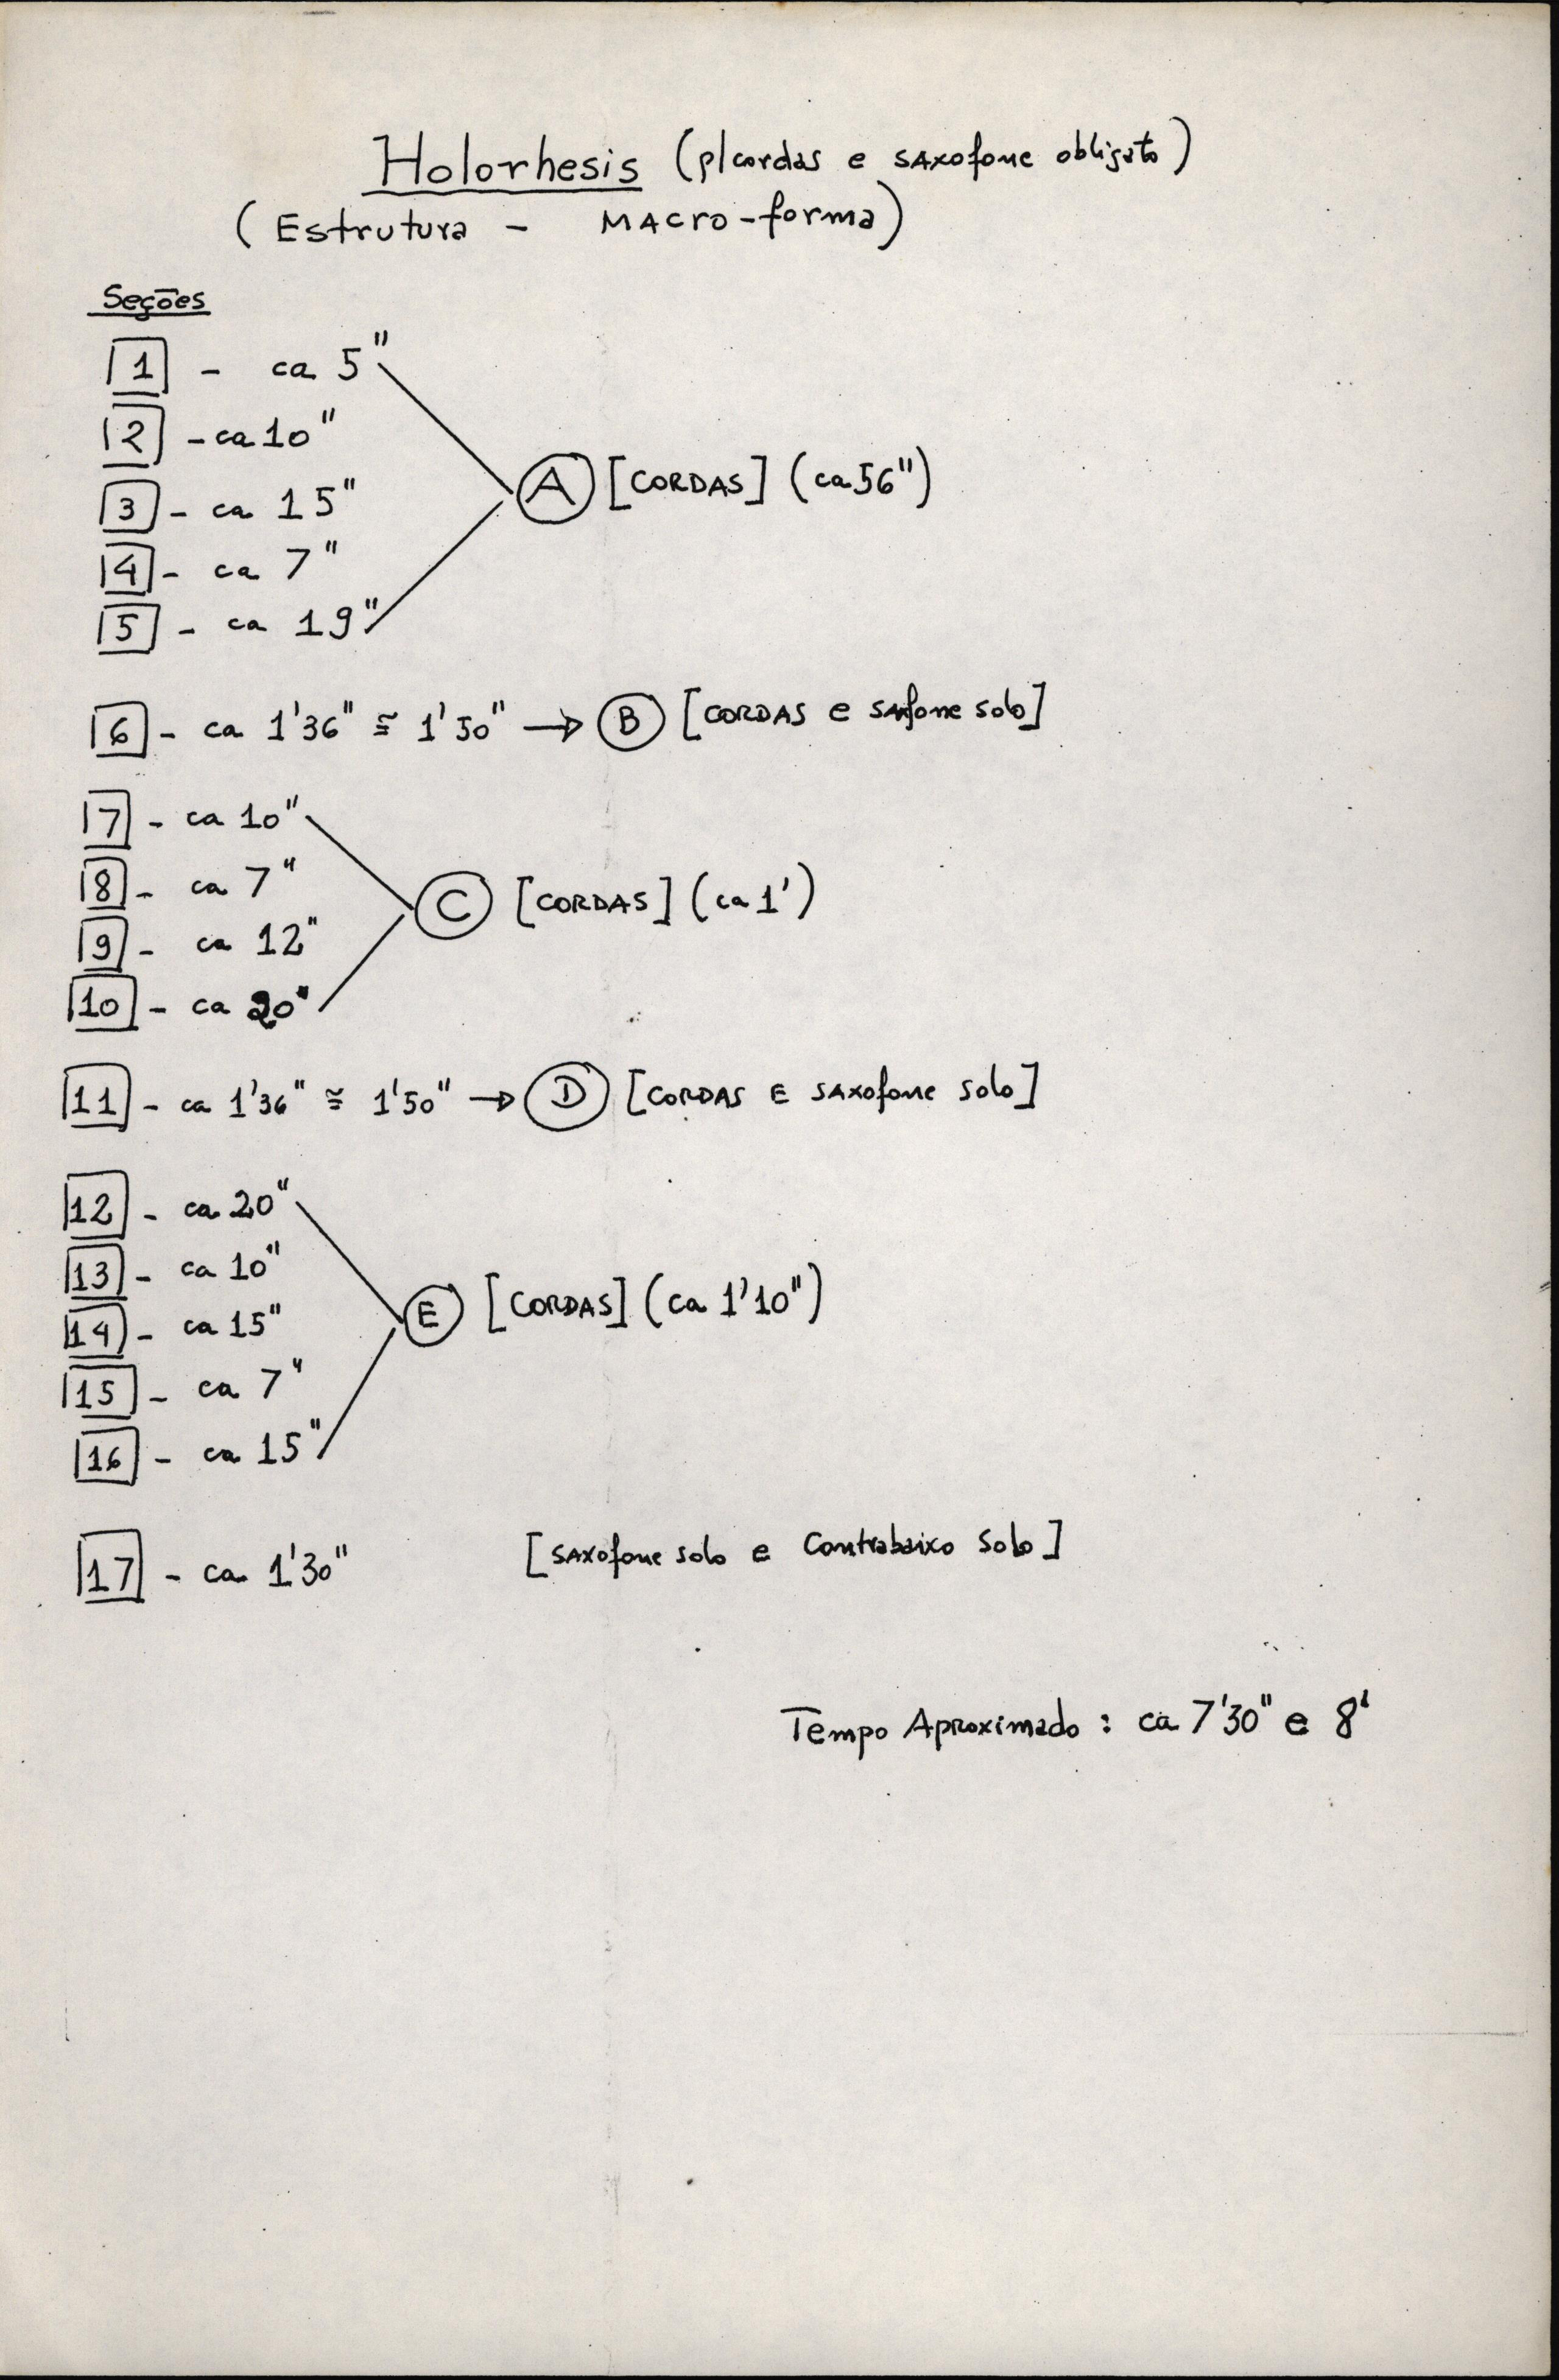 Holorhesis (p/cordas e saxofone obligato)
(Estrutura - Macro-forma)
Seções
1 - ca 5"
2 - ca 10"
3 - ca 15"
4 - ca 7"
5 - ca 19"
A [CORDAS] (ca 56")
6 - ca 1'36" ≅ 1'50" → B [CORDAS e saxfone solo]
7 - ca 10"
8 - ca 7"
9 - ca 12"
10 - ca 20"
C [CORDAS] (ca 1')
11 - ca 1'36" ≅ 1'50" → D [CORDAS E saxofone solo]
12 - ca 20"
13 - ca 10"
14 - ca 15"
15 - ca 7"
16 - ca 15"
E [CORDAS] (ca 1'10")
17 - ca 1'30" [saxofone solo e Contrabaixo solo]
Tempo Aproximado : ca 7'30" e 8'